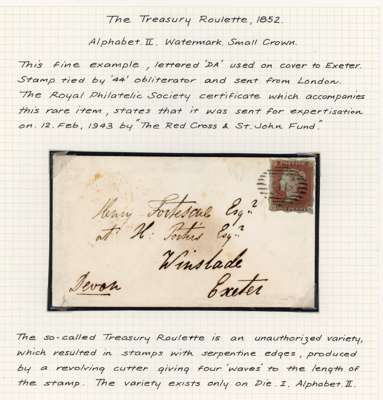 The Treasury Roulette, 1852.
Alphabet II. Watermark, Small Crown.
This fine example, lettered 'DA' used on cover to Exeter.
Stamp tied by '44' obliterator and sent from London.
The Royal Philatelic Society certificate which accompanies
this rare item, states that it was sent for expertisation
on 12. Feb, 1943 by "The Red Cross & St. John Fund."
Henry Fortescue Esqr.
at H. Porters Esqr.
Winslade
Exeter
Devon
The so-called Treasury Roulette is an unauthorized variety,
which resulted in stamps with serpentine edges, produced
by a revolving cutter giving four 'waves' to the length of
the stamp. The variety exists only on Die. I. Alphabet. II.